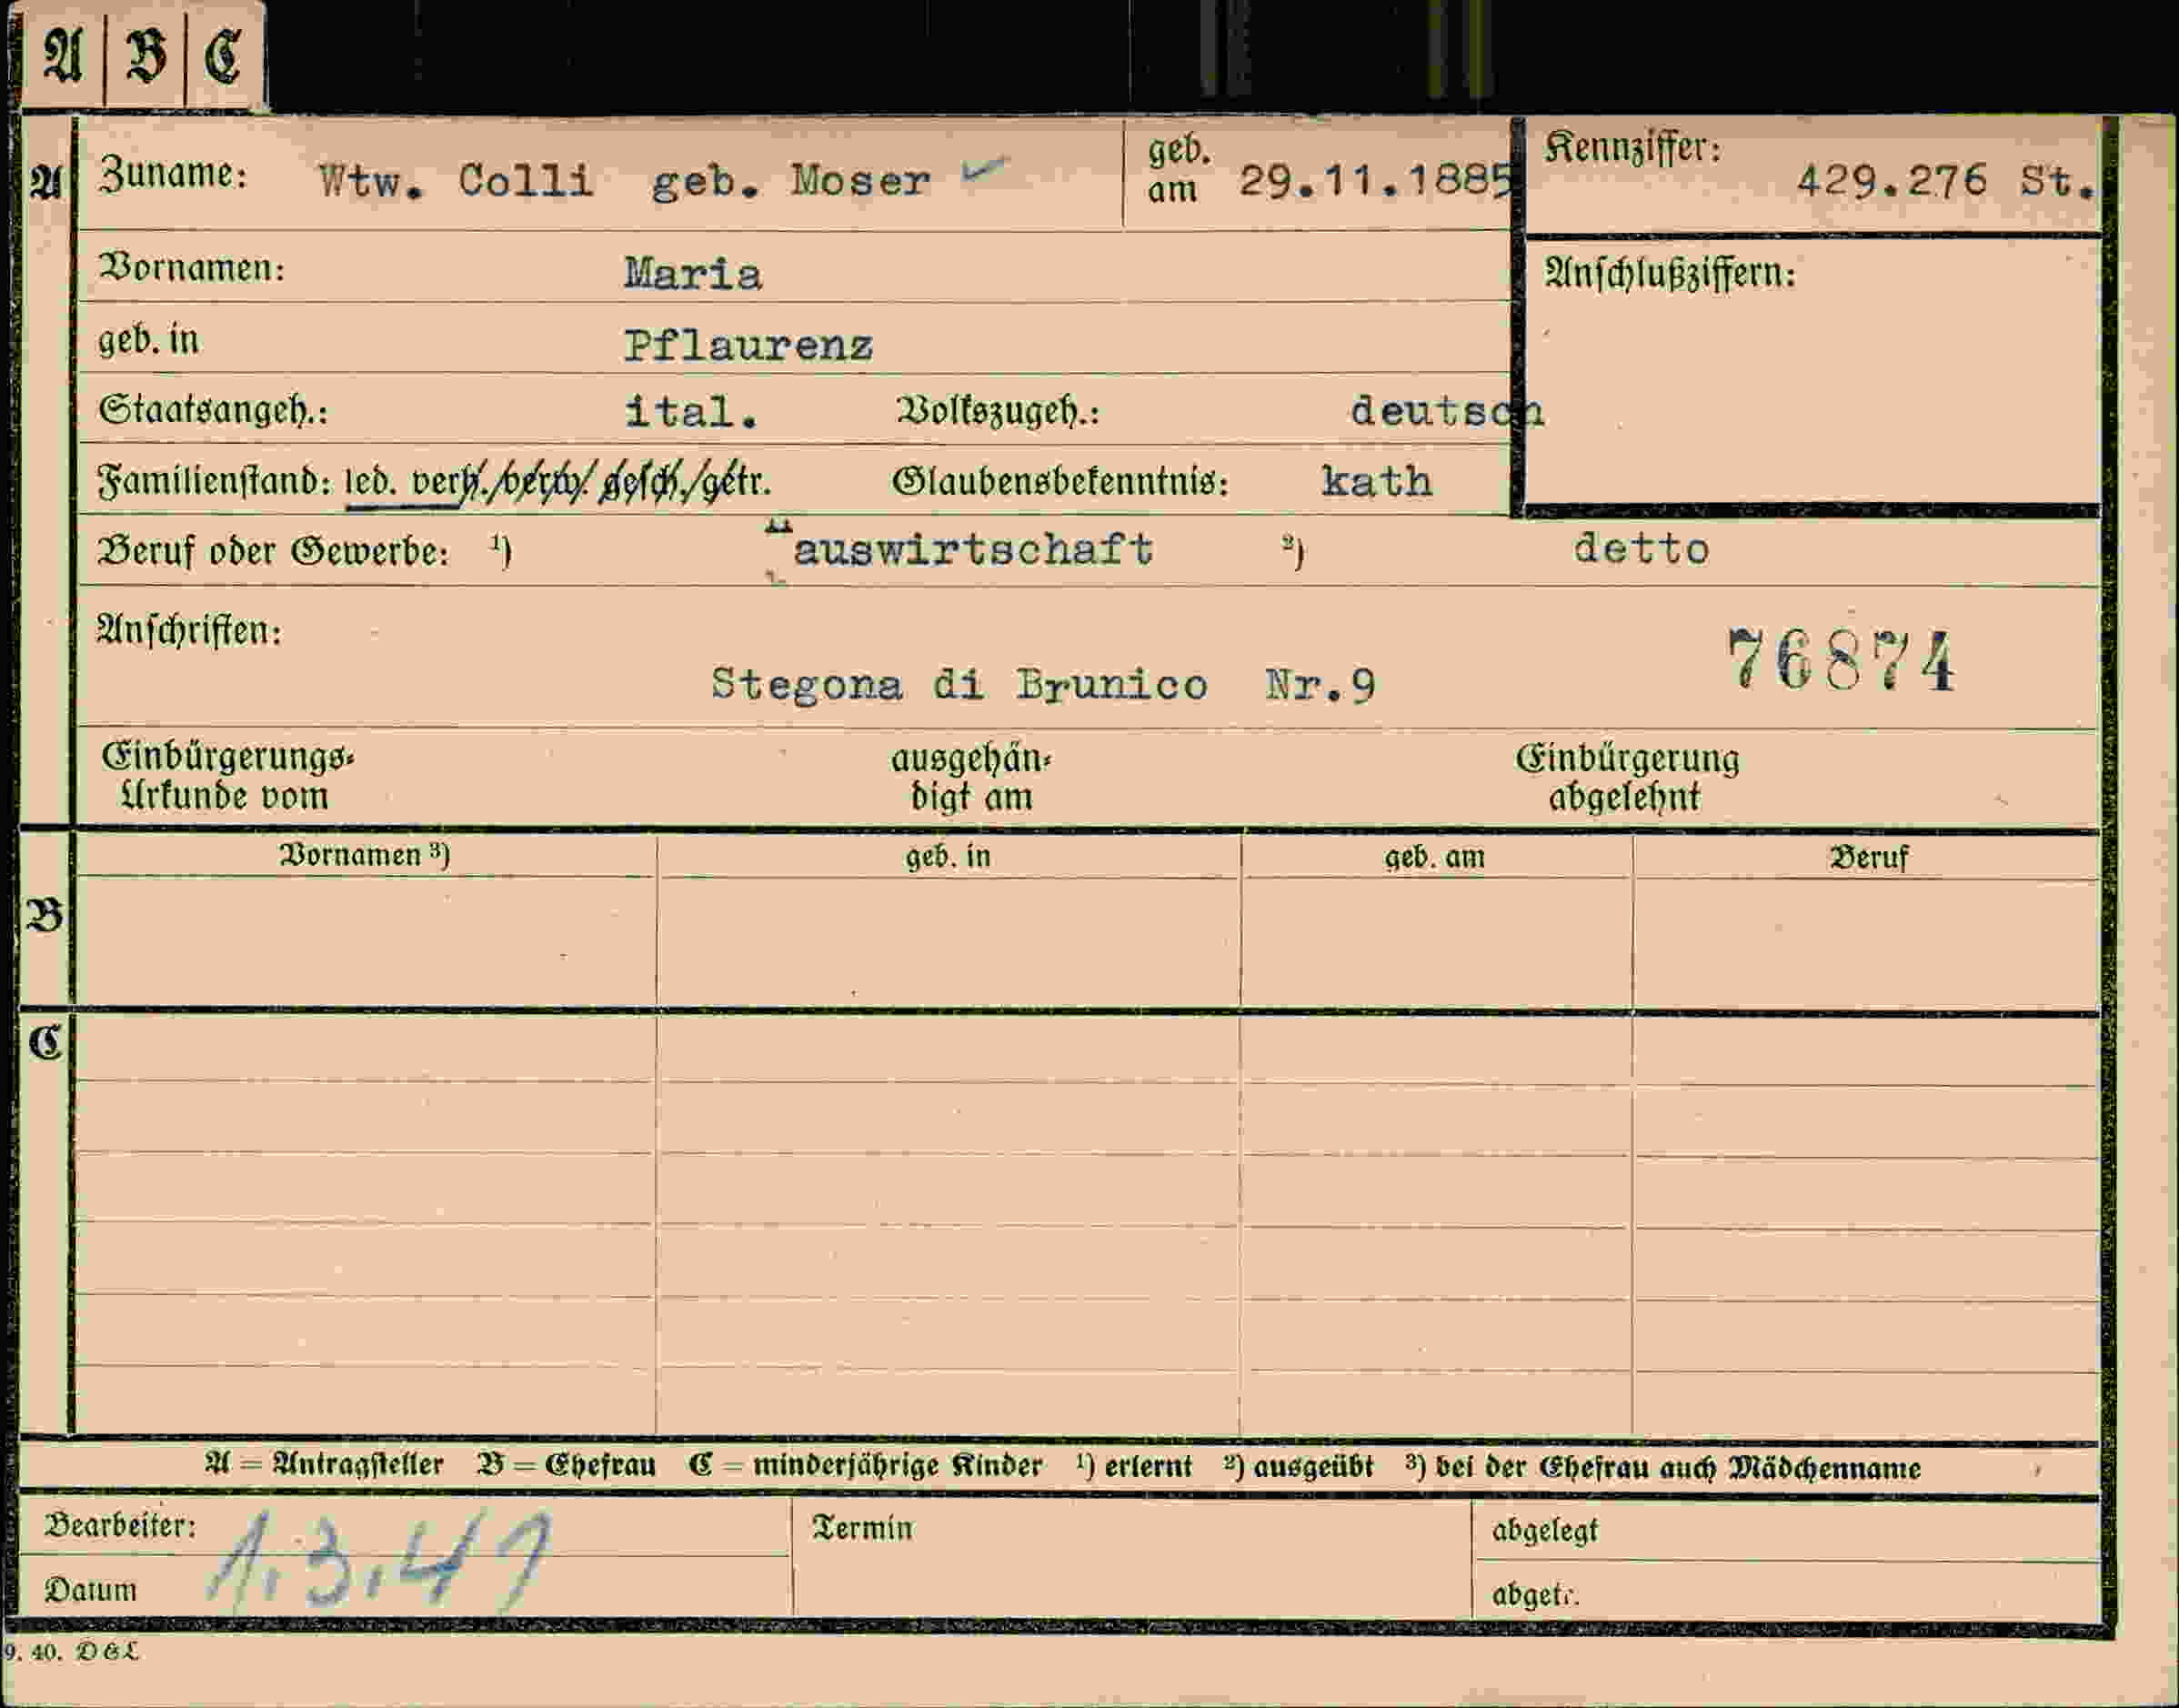 A B C
A Zuname: Wtw. Colli geb. Moser ✓ geb. am 29.11.1885 Kennziffer: 429.276 St.
Vornamen: Maria Anschlußziffern:
geb. in Pflaurenz
Staatsangeh.: ital. Volkszugeh.: deutsch
Familienstand: led. verh./verw./gesch./getr. Glaubensbekenntnis: kath
Beruf oder Gewerbe: ¹) Hauswirtschaft ²) detto
Anschriften: 76874
Stegona di Brunico Nr.9
Einbürgerungs- ausgehän- Einbürgerung
Urkunde vom digt am abgelehnt
Vornamen ³) geb. in geb. am Beruf
B
C
A = Antragsteller B = Ehefrau C = minderjährige Kinder ¹) erlernt ²) ausgeübt ³) bei der Ehefrau auch Mädchenname
Bearbeiter: Termin abgelegt
1.3.41
Datum abgetr.
9. 40. D&L